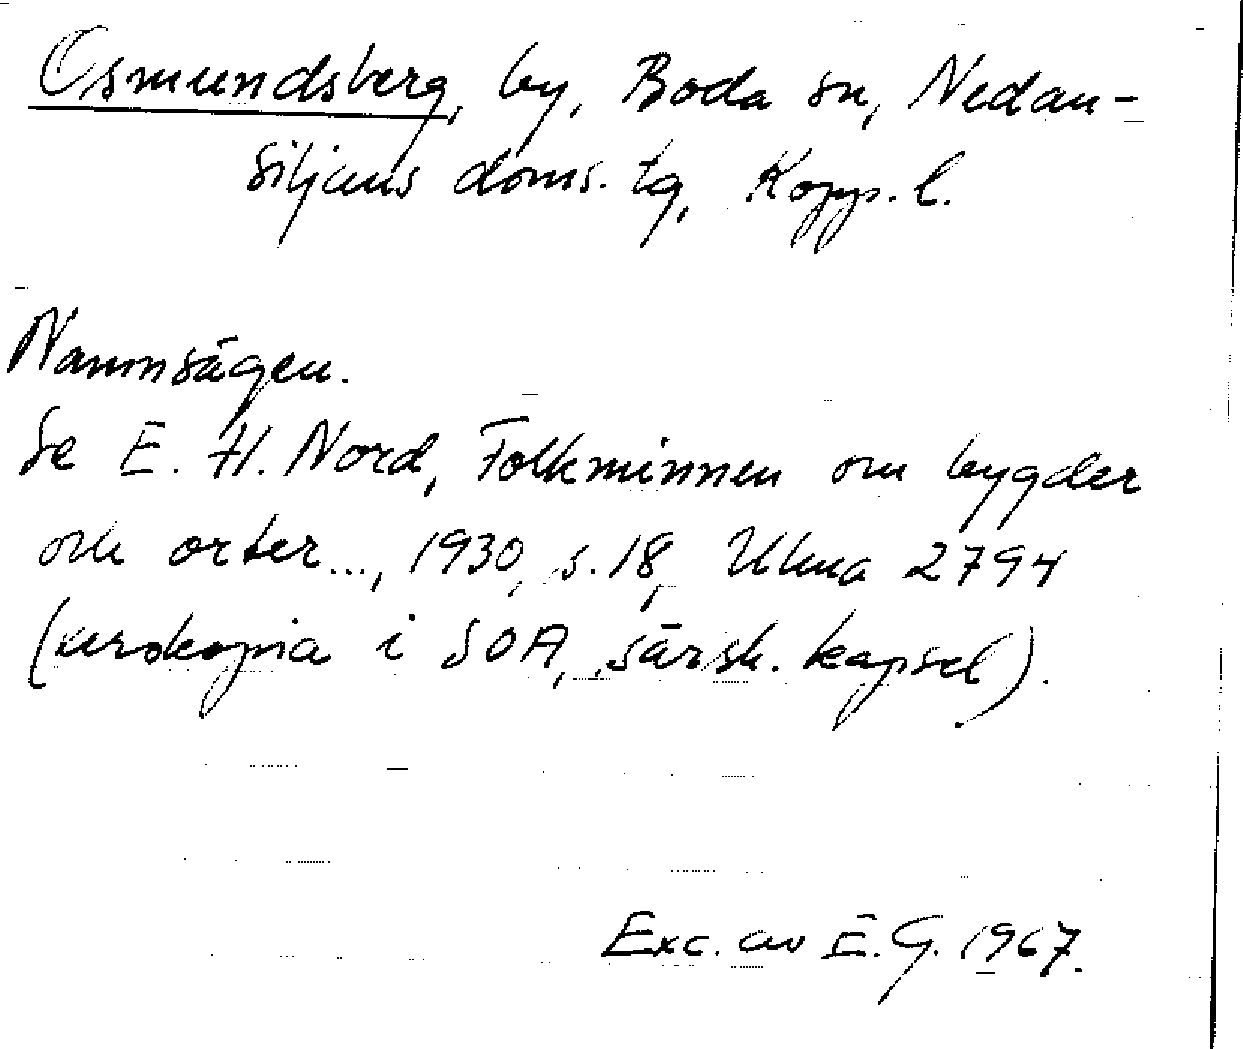 Osmundsberg, by, Boda sn, Nedan-
siljans doms. tg, Kopp. l.
Namnsägen.
Se E. H. Nord, Folkminnen om bygder
och orter..., 1930, s. 18, Ulma 2794
(xerokopia i SOA, särsk. kapsel).
Exc. av E. G. 1967.